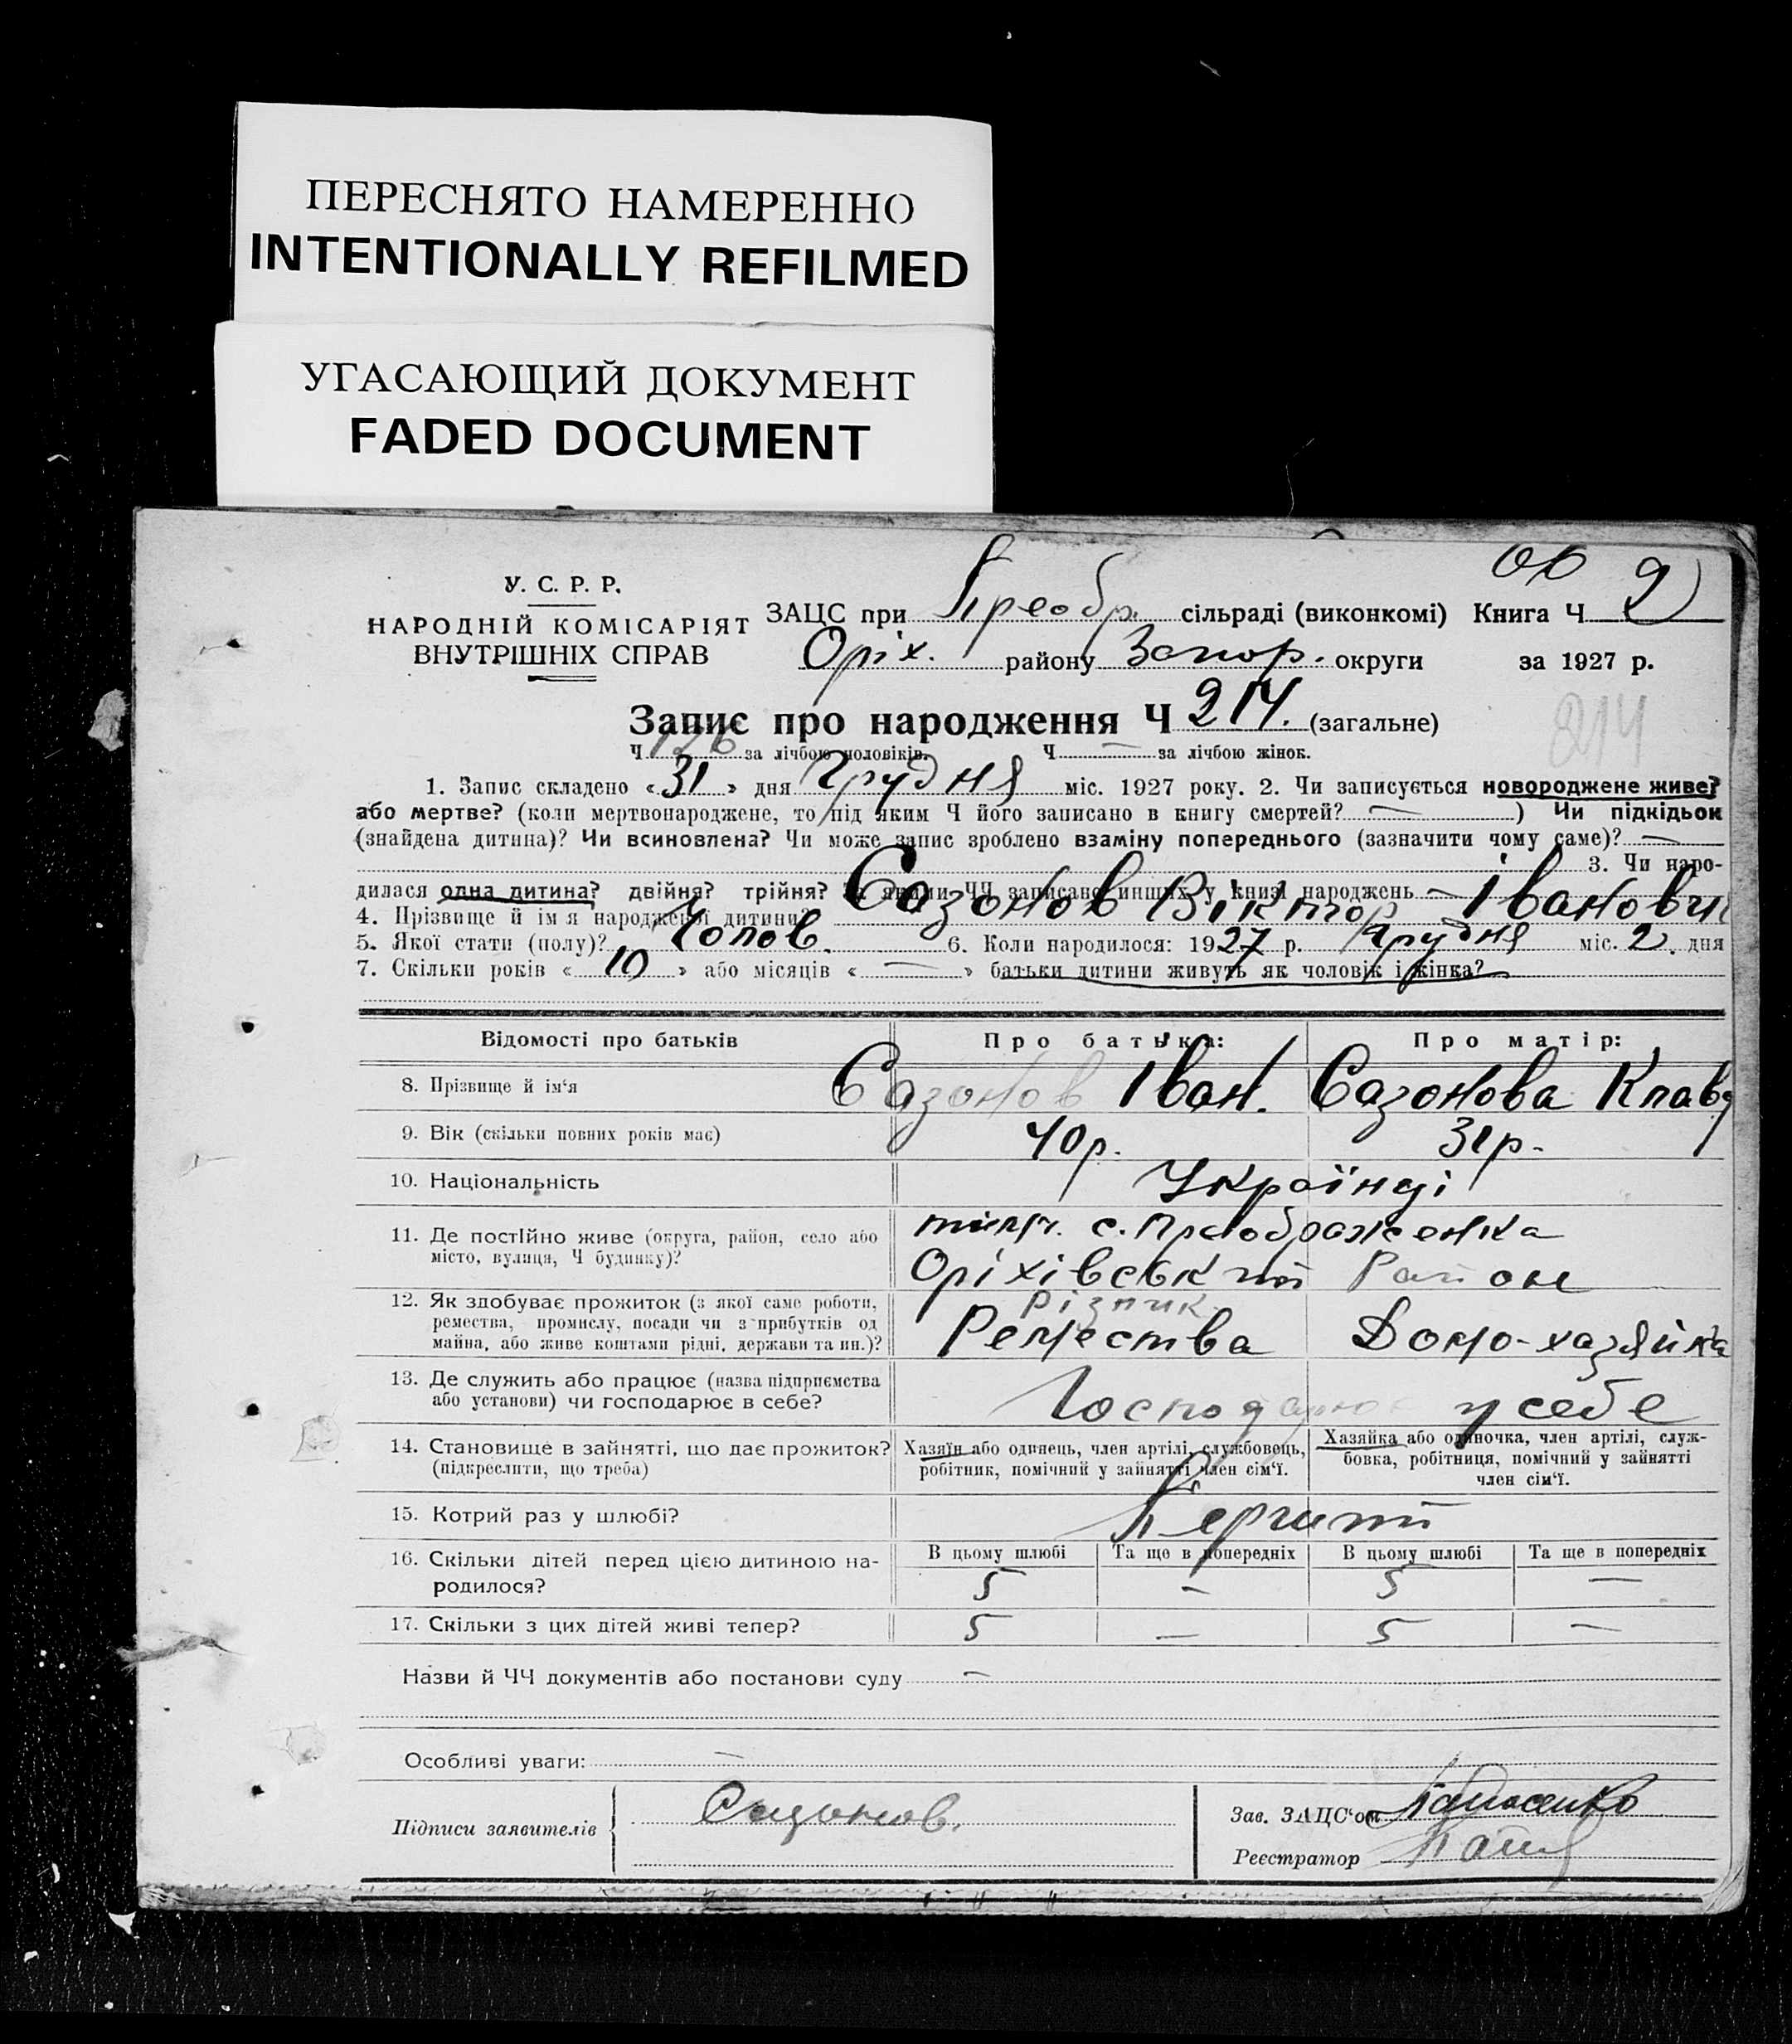 ПЕРЕСНЯТО НАМЕРЕННО
INTENTIONALLY REFILMED
УГАСАЮЩИЙ ДОКУМЕНТ
FADED DOCUMENT
У. С. Р. Р.
НАРОДНІЙ КОМІСАРІЯТ
ВНУТРІШНІХ СПРАВ
ЗАЦС при Преобр. сільраді (виконкомі) Книга Ч 2
Оріх. району Запор. округи за 1927 р.
Запис про народження Ч 214. (загальне)
214
Ч 126 за лічбою чоловіків. Ч — за лічбою жінок.
1. Запис складено «31» дня Грудня міс. 1927 року. 2. Чи записується новороджене живе?
або мертве? (коли мертвонароджене, то під яким Ч його записано в книгу смертей? — ) Чи підкідьок
(знайдена дитина)? Чи всиновлена? Чи може запис зроблено взаміну попереднього (зазначити чому саме)? —
3. Чи наро-
дилася одна дитина? двійня? трійня? За якими ЧЧ записано инших у книзі народжень —
4. Прізвище й ім'я народженої дитини Сазонов Віктор Іванович
5. Якої стати (полу)? Чолов. 6. Коли народилося: 1927 р. Грудня міс. 2. дня
7. Скільки років «10» або місяців « — » батьки дитини живуть як чоловік і жінка?
Відомості про батьків Про батька: Про матір:
8. Прізвище й ім'я Сазонов Іван. Сазонова Клавд
9. Вік (скільки повних років має) 40 р. 31 р.
10. Національність Українці
11. Де постійно живе (округа, район, село або
місто, вулиця, Ч будинку)?
с. Преображенка
Оріхівський Район
12. Як здобуває прожиток (з якої саме роботи,
ремества, промислу, посади чи з прибутків од
майна, або живе коштами рідні, держави та ин.)?
Різник
Ремества Домо-хазяйка
13. Де служить або працює (назва підприємства
або установи) чи господарює в себе?
Господарює у себе
14. Становище в зайнятті, що дає прожиток?
(підкреслити, що треба)
Хазяїн або одинець, член артілі, службовець,
робітник, помічний у зайнятті член сім'ї.
Хазяйка або одиночка, член артілі, служ-
бовка, робітниця, помічний у зайнятті
член сім'ї.
15. Котрий раз у шлюбі? Перший
16. Скільки дітей перед цією дитиною на-
родилося?
В цьому шлюбі Та ще в попередніх В цьому шлюбі Та ще в попередніх
5 — 5 —
17. Скільки з цих дітей живі тепер? 5 — 5 —
Назви й ЧЧ документів або постанови суду —
Особливі уваги: —
Підписи заявителів Сазонов.
Зав. ЗАЦС'ом
Реєстратор